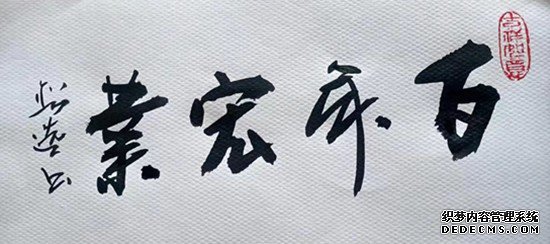 吉祥如意
百年宏業
织梦内容管理系统
DEDECMS.COM